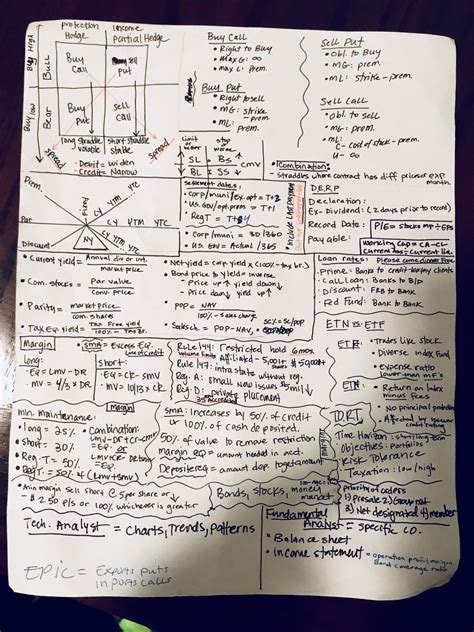 protection Hedge
income Partial Hedge
Buy High
Bull
Buy Call
Sell put
Buy low
Bear
Buy Put
Sell call
long straddle volatile
short straddle stable
Spread
Spread
Debit = widen
Credit = Narrow
Buy Call
• Right to Buy
• Max G: ∞
• max L: prem.
Buy Put
• Right to sell
• MG: strike - prem
• ML: prem.
Sell Put
• Obl. to Buy
• MG: Prem
• ML: strike - prem.
Sell Call
• Obl. to sell
• MG: prem
• ML:
C - cost of stock - prem
U - ∞
Limit or better
stop or worse
SL = BS
BL = SS
CMV
• Combination:
- straddles where contract has diff prices or exp month
Prem.
Par
Discount
CY YTM YTC
NY
CY YTM YTC
Settlement dates:
• corp/muni/ex.opt = T+2
• US. Gov/opt.prem = T+1
• Reg T = T+4
• Corp/muni = 30/360
• US. Gov = Actual/365
D.E.R.P
Declaration:
Ex-Dividend: (2 days prior to record)
Record Date:
Payable:
P/E = stocks MP ÷ EPS
Working Cap = CA - CL
• Current yield = Annual div or int. / market price
• Com. stocks = Par value / conv. price
• Parity = market price / com. share
• Tax EQ. yield = Tax Free yield / 100% - Tax Br.
• Net yield = corp yield x (100% - tax br.)
• Bond price to yield = inverse
- Price up ↑ yield down ↓
- price down ↓ yield up ↑
• POP = NAV / 100% - sales charge
Loan rates: please come dinner Fred
Prime: Banks to credit-worthy clients
Call Loan: Banks to B/D
Discount: FRB to Bank
Fed Fund: Bank to Bank
ETN vs ETF
• Trades like stock
• Diverse index Fund
• Expense ratio lower than MF's
ETN
• Return on Index minus fees
• No principal protection
• Affected by issuer credit rating
Margin
• SMA = Excess EQ.
Long:
• EQ = LMV - DR
• MV = 4/3 x DR
Short:
• EQ = CR - SMV
• MV = 10/13 x CR
Rule 144: Restricted hold 6 mos
Rule 147: intrastate without reg.
Reg. A: small new issues
Reg D: private placement
min. maintenance:
Margin
• long = 25%
• short = 30%
• Reg T = 50%
• Combination:
SMA: increases by 50% of credit or 100% of cash deposited.
50% of value to remove restriction
margin eq = amount needed in acct.
Deposit req = amount dep to get amount
D.O.R.T
Time Horizon - short/long term
Objectives - portfolio
Risk Tolerance
Taxation: low/high
• Min margin sell short @ 5 per share or ↓
= 2.50 p/s or 100% whichever is greater
Bonds, stocks, money market
priority of orders
1) presale 2) Group net
3) Net designated 4) member
Tech. Analyst = Charts, Trends, patterns
Fundamental Analyst = Specific Co.
• Balance sheet
• Income statement = operation profit margin
Bond coverage ratio
EPIC = Exports puts
imports calls